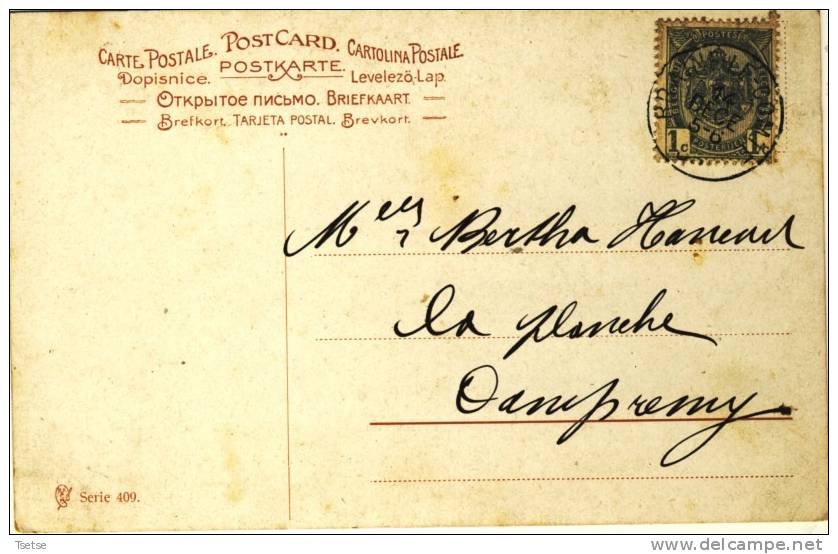 CARTE POSTALE. POST CARD. CARTOLINA POSTALE.
Dopisnice. POSTKARTE. Levelező-Lap.
Открытое письмо. BRIEFKAART.
Brefkort. TARJETA POSTAL. Brevkort.
POSTES
1 c 1 c
DÉCE
5-6
Melles Bertha Hancart
la planche
Dampremy
Serie 409.
Tsetse
delcampe.net